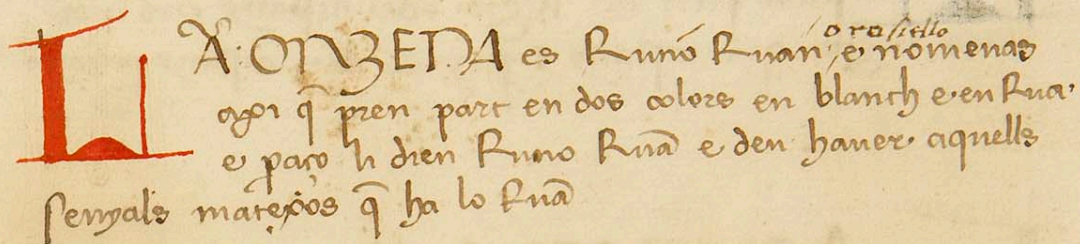 o rosiello
LA: ONZENA es Rució Ruan, e nomenas
axi q̄ pren part en dos colors en blanch e·en Rua·
e ꝑaço li dien Rucio Ruā e deu hauer aquells
senyals matexos q̄ ha lo Ruā